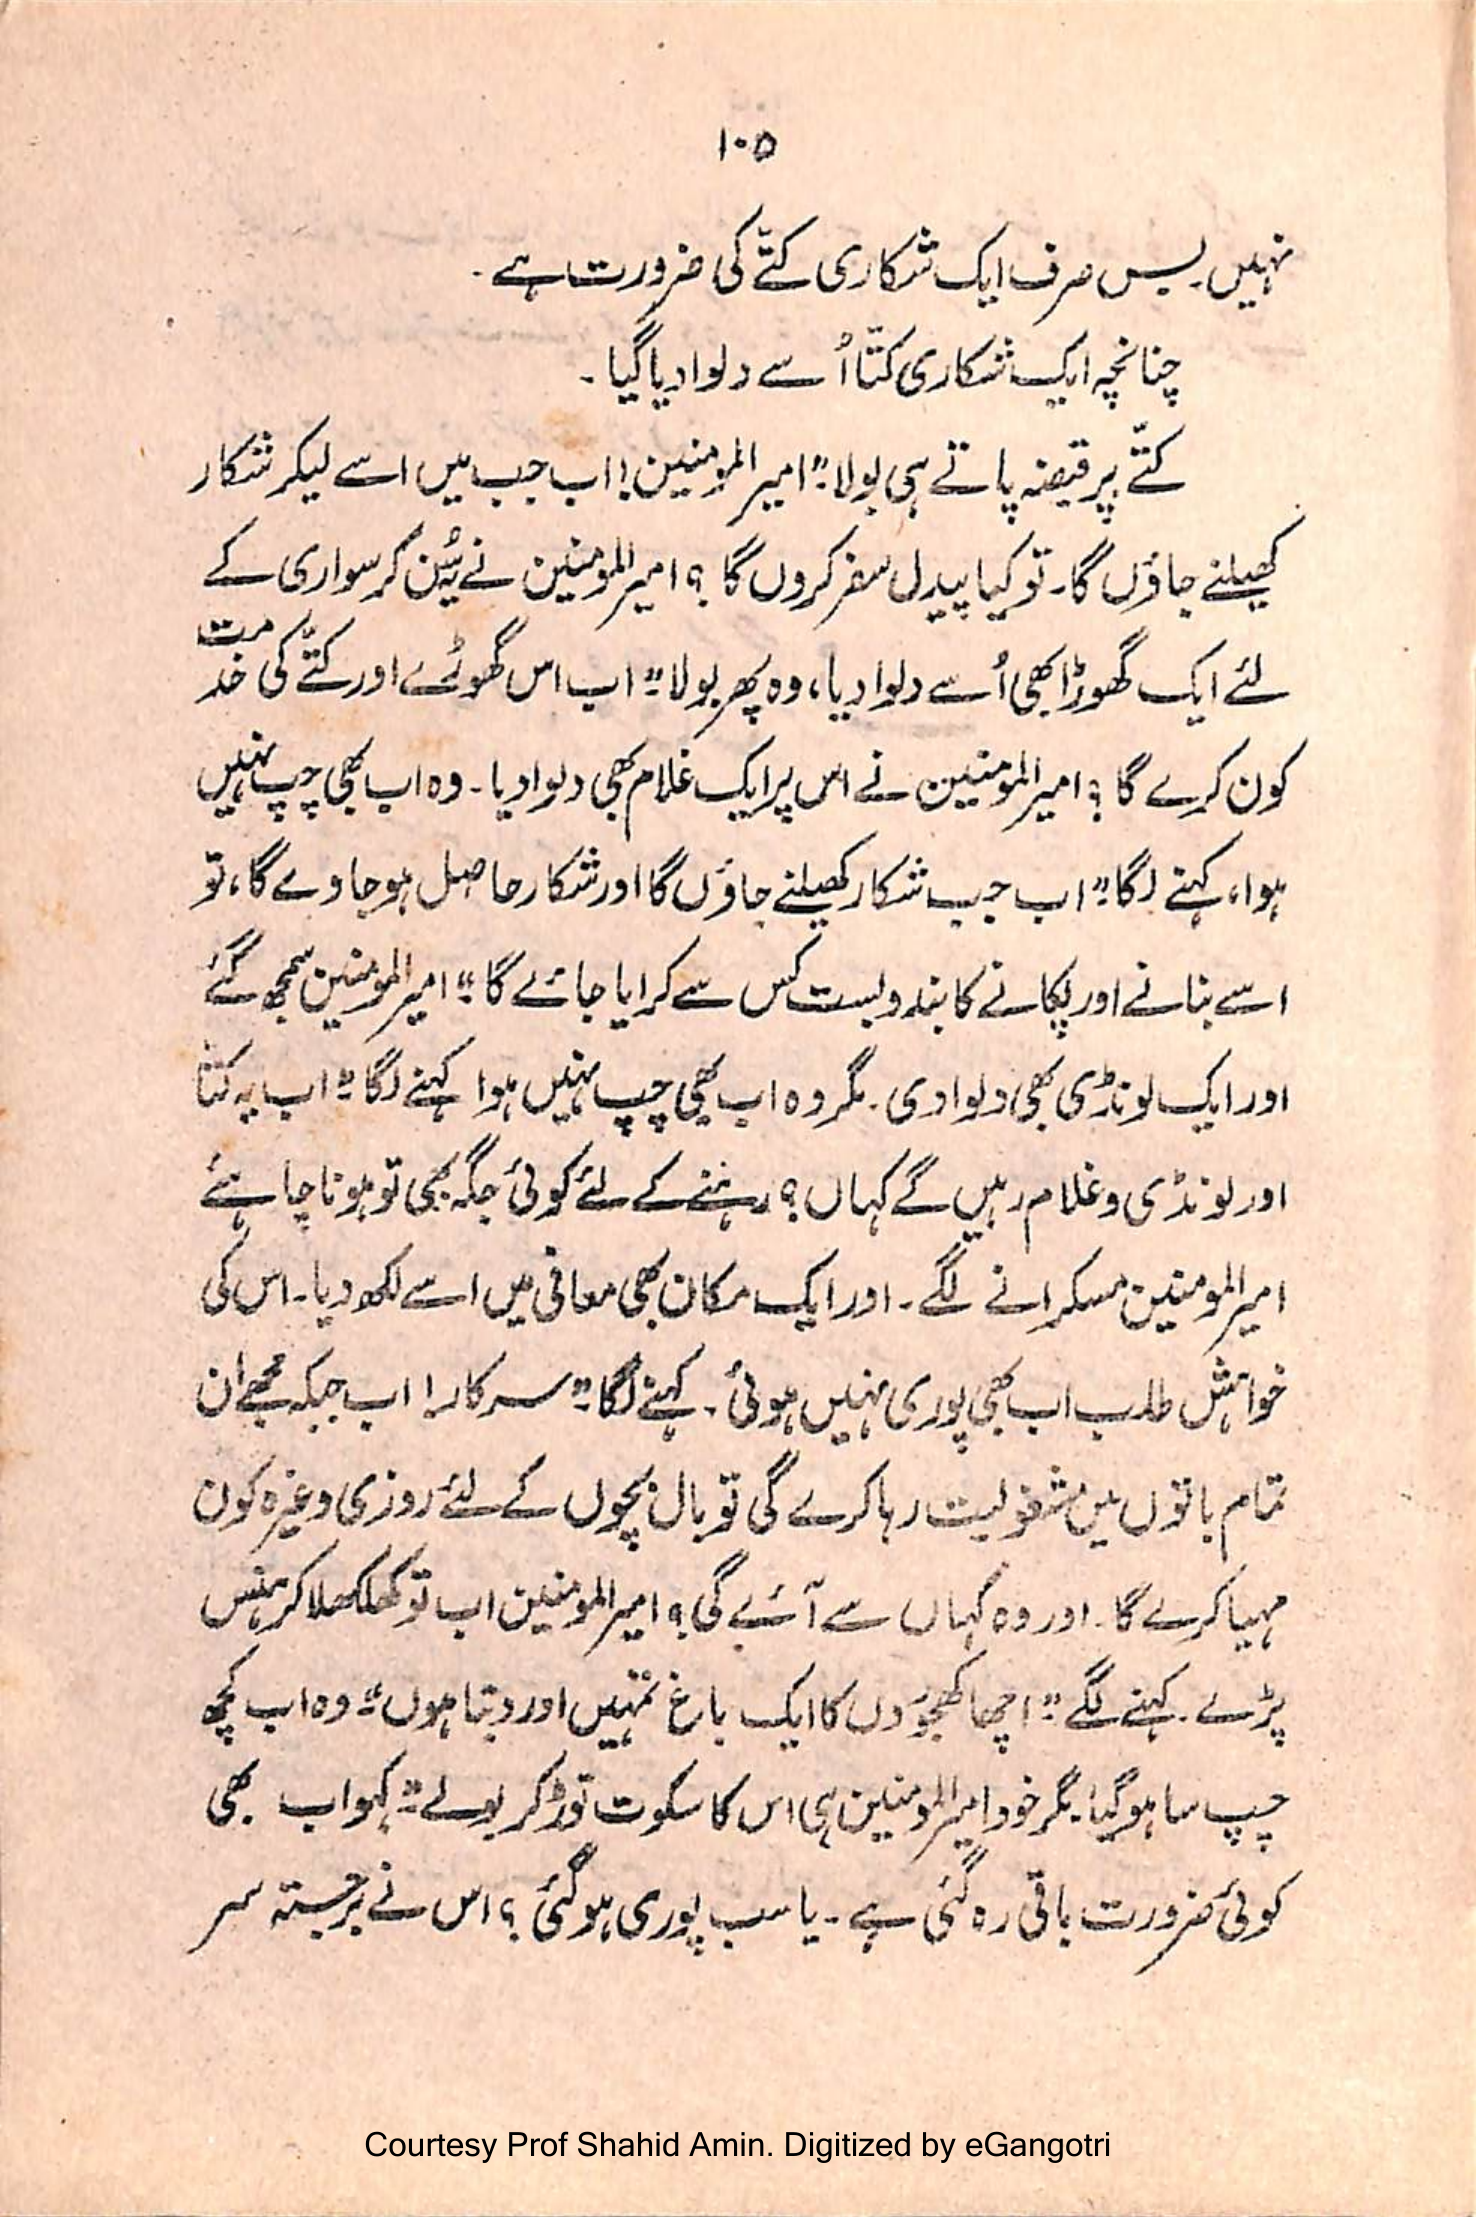 ۱۰۵
نہیں۔ بس صرف ایک شکاری کتّے کی ضرورت ہے۔
چنانچہ ایک شکاری کتّا اُسے دلوا دیا گیا۔
کتّے پر قبضہ پاتے ہی بولا "امیر المومنین! اب جب میں اسے لیکر شکار
کھیلنے جاؤں گا۔ تو کیا پیدل سفر کروں گا؟ امیر المومنین نے یہ سُن کر سواری کے
لئے ایک گھوڑا بھی اُسے دلوا دیا، وہ پھر بولا" اب اس گھوڑے اور کتّے کی خدمت
کون کرے گا؟ امیر المومنین نے اس پر ایک غلام بھی دلوا دیا۔ وہ اب بھی چپ نہیں
ہوا، کہنے لگا" اب جب شکار کھیلنے جاؤں گا اور شکار حاصل ہو جاوے گا، تو
اسے بنانے اور پکانے کا بندوبست کس سے کرایا جائے گا" امیر المومنین سمجھ گئے
اور ایک لونڈی بھی دلوا دی۔ مگر وہ اب بھی چپ نہیں ہوا کہنے لگا" اب یہ کتّا
اور لونڈی و غلام رہیں گے کہاں؟ رہنے کے لئے کوئی جگہ بھی تو ہونا چاہئے
امیر المومنین مسکرانے لگے۔ اور ایک مکان بھی معافی میں اسے لکھ دیا۔ اس کی
خواہش طلب اب بھی پوری نہیں ہوئی۔ کہنے لگا" سرکار! اب جبکہ مجھے ان
تمام باتوں میں مشغولیت رہا کرے گی تو بال بچوں کے لئے روزی وغیرہ کون
مہیا کرے گا۔ اور وہ کہاں سے آئے گی؟ امیر المومنین اب تو کھلکھلا کر ہنس
پڑے۔ کہنے لگے" اچھا کھجوروں کا ایک باغ تمہیں اور دیتا ہوں" وہ اب کچھ
چپ سا ہو گیا۔ مگر خود امیر المومنین ہی اس کا سکوت توڑ کر بولے" کہو اب بھی
کوئی ضرورت باقی رہ گئی ہے۔ یا سب پوری ہو گئی؟ اس نے برجستہ سر
Courtesy Prof Shahid Amin. Digitized by eGangotri